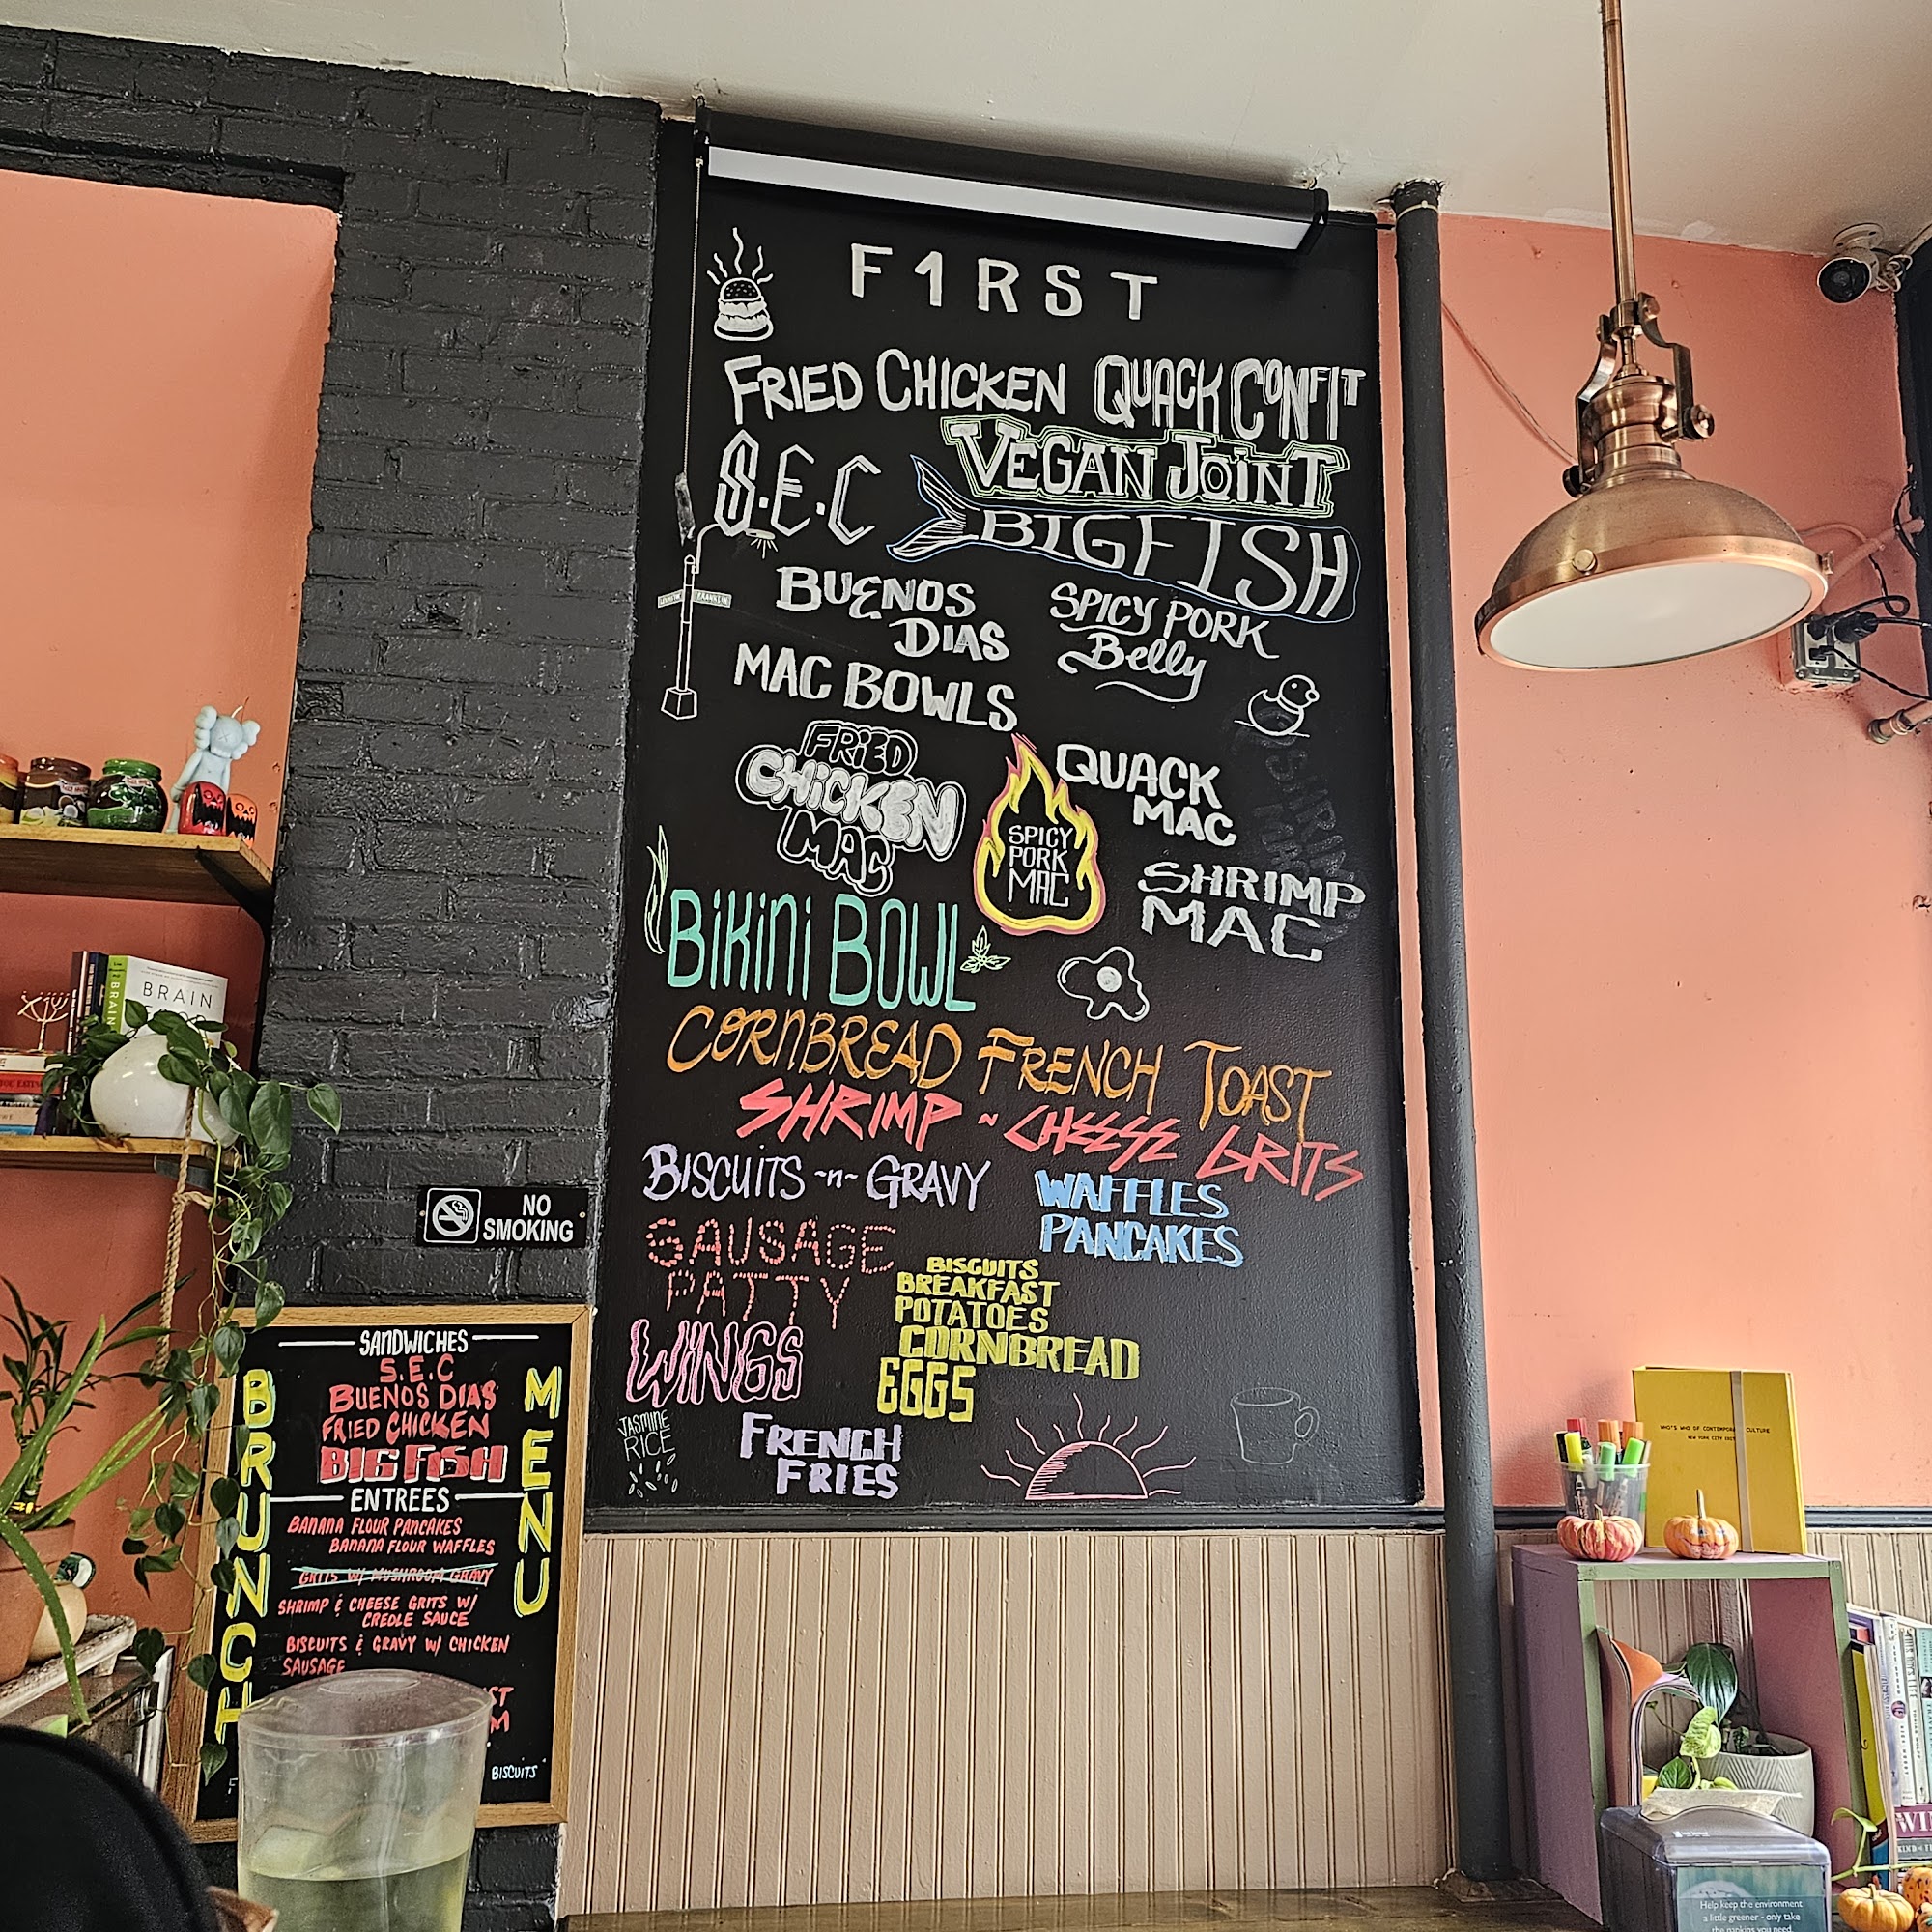 F1RST
FRIED CHICKEN
QUACK CONFIT
VEGAN JOINT
S.E.C
BIGFISH
BUENOS
DIAS
SPICY PORK
Belly
MAC BOWLS
FRIED
CHICKEN
MAC
SPICY
PORK
MAC
QUACK
MAC
SHRIMP
MAC
BIKINI BOWL
CORNBREAD FRENCH TOAST
SHRIMP ~ CHEESE GRITS
BISCUITS -n- GRAVY
WAFFLES
PANCAKES
SAUSAGE
PATTY
BISCUITS
BREAKFAST
POTATOES
CORNBREAD
EGGS
WINGS
JASMINE
RICE
FRENCH
FRIES
NO
SMOKING
BRUNCH
MENU
SANDWICHES
S.E.C
BUENOS DIAS
FRIED CHICKEN
BIG FISH
ENTREES
BANANA FLOUR PANCAKES
BANANA FLOUR WAFFLES
GRITS W/ MUSHROOM GRAVY
SHRIMP & CHEESE GRITS W/
CREOLE SAUCE
BISCUITS & GRAVY W/ CHICKEN
SAUSAGE
BISCUITS
BRAIN
BRAIN
WHO'S WHO OF CONTEMPORARY CULTURE
NEW YORK CITY
Help keep the environment
a little greener - only take
the napkins you need.